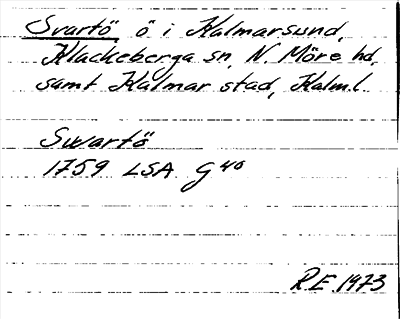 Svartö ö i Kalmarsund,
Klackeberga sn, N. Möre hd,
samt Kalmar stad, Kalm.l.
Swartö
1759 LSA G 40
R.E. 1973